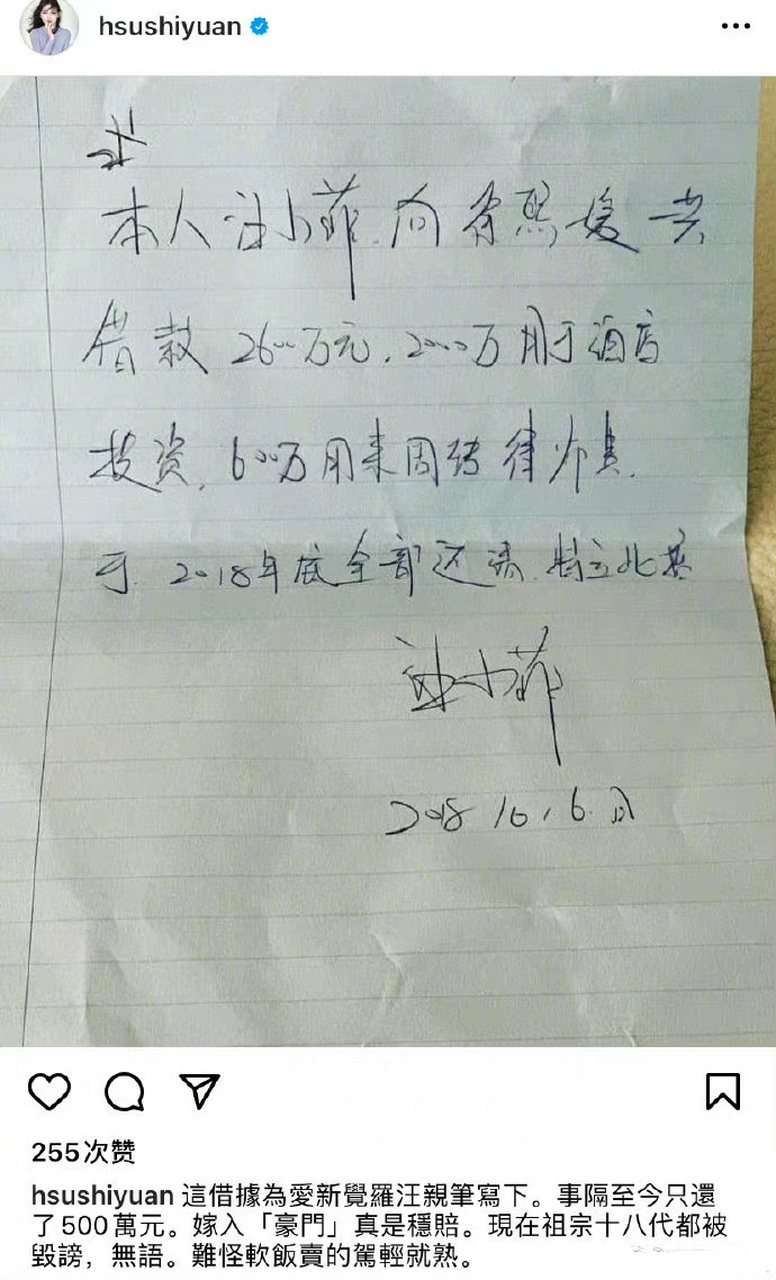 hsushiyuan
本人汪小菲向徐熙媛共
借款2600万元,2000万用于酒店
投资,600万用来周转律师费.
于2018年底全部还清.特立此据
汪小菲
255次赞
hsushiyuan 這借據為愛新覺羅汪親筆寫下。事隔至今只還
了500萬元。嫁入「豪門」真是穩賠。現在祖宗十八代都被
毀謗，無語。難怪軟飯賣的駕輕就熟。